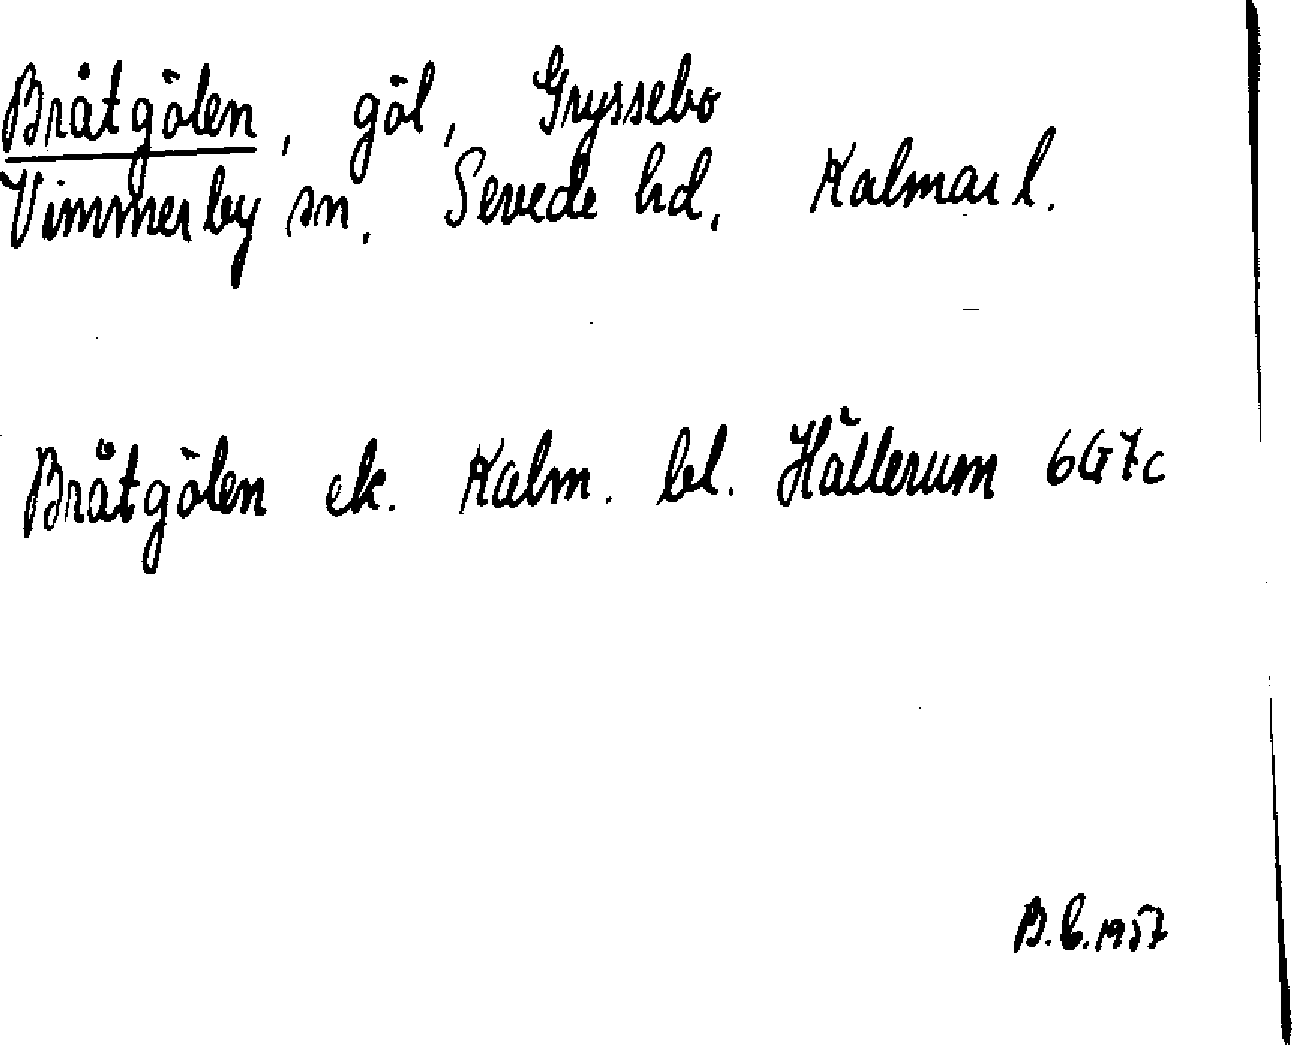 Bråtgölen, göl, Gryssebo
Vimmerby sn. Sevede hd. Kalmar l.
Bråtgölen ek. Kalm. bl. Hällerum 6G7c
B.C.1957